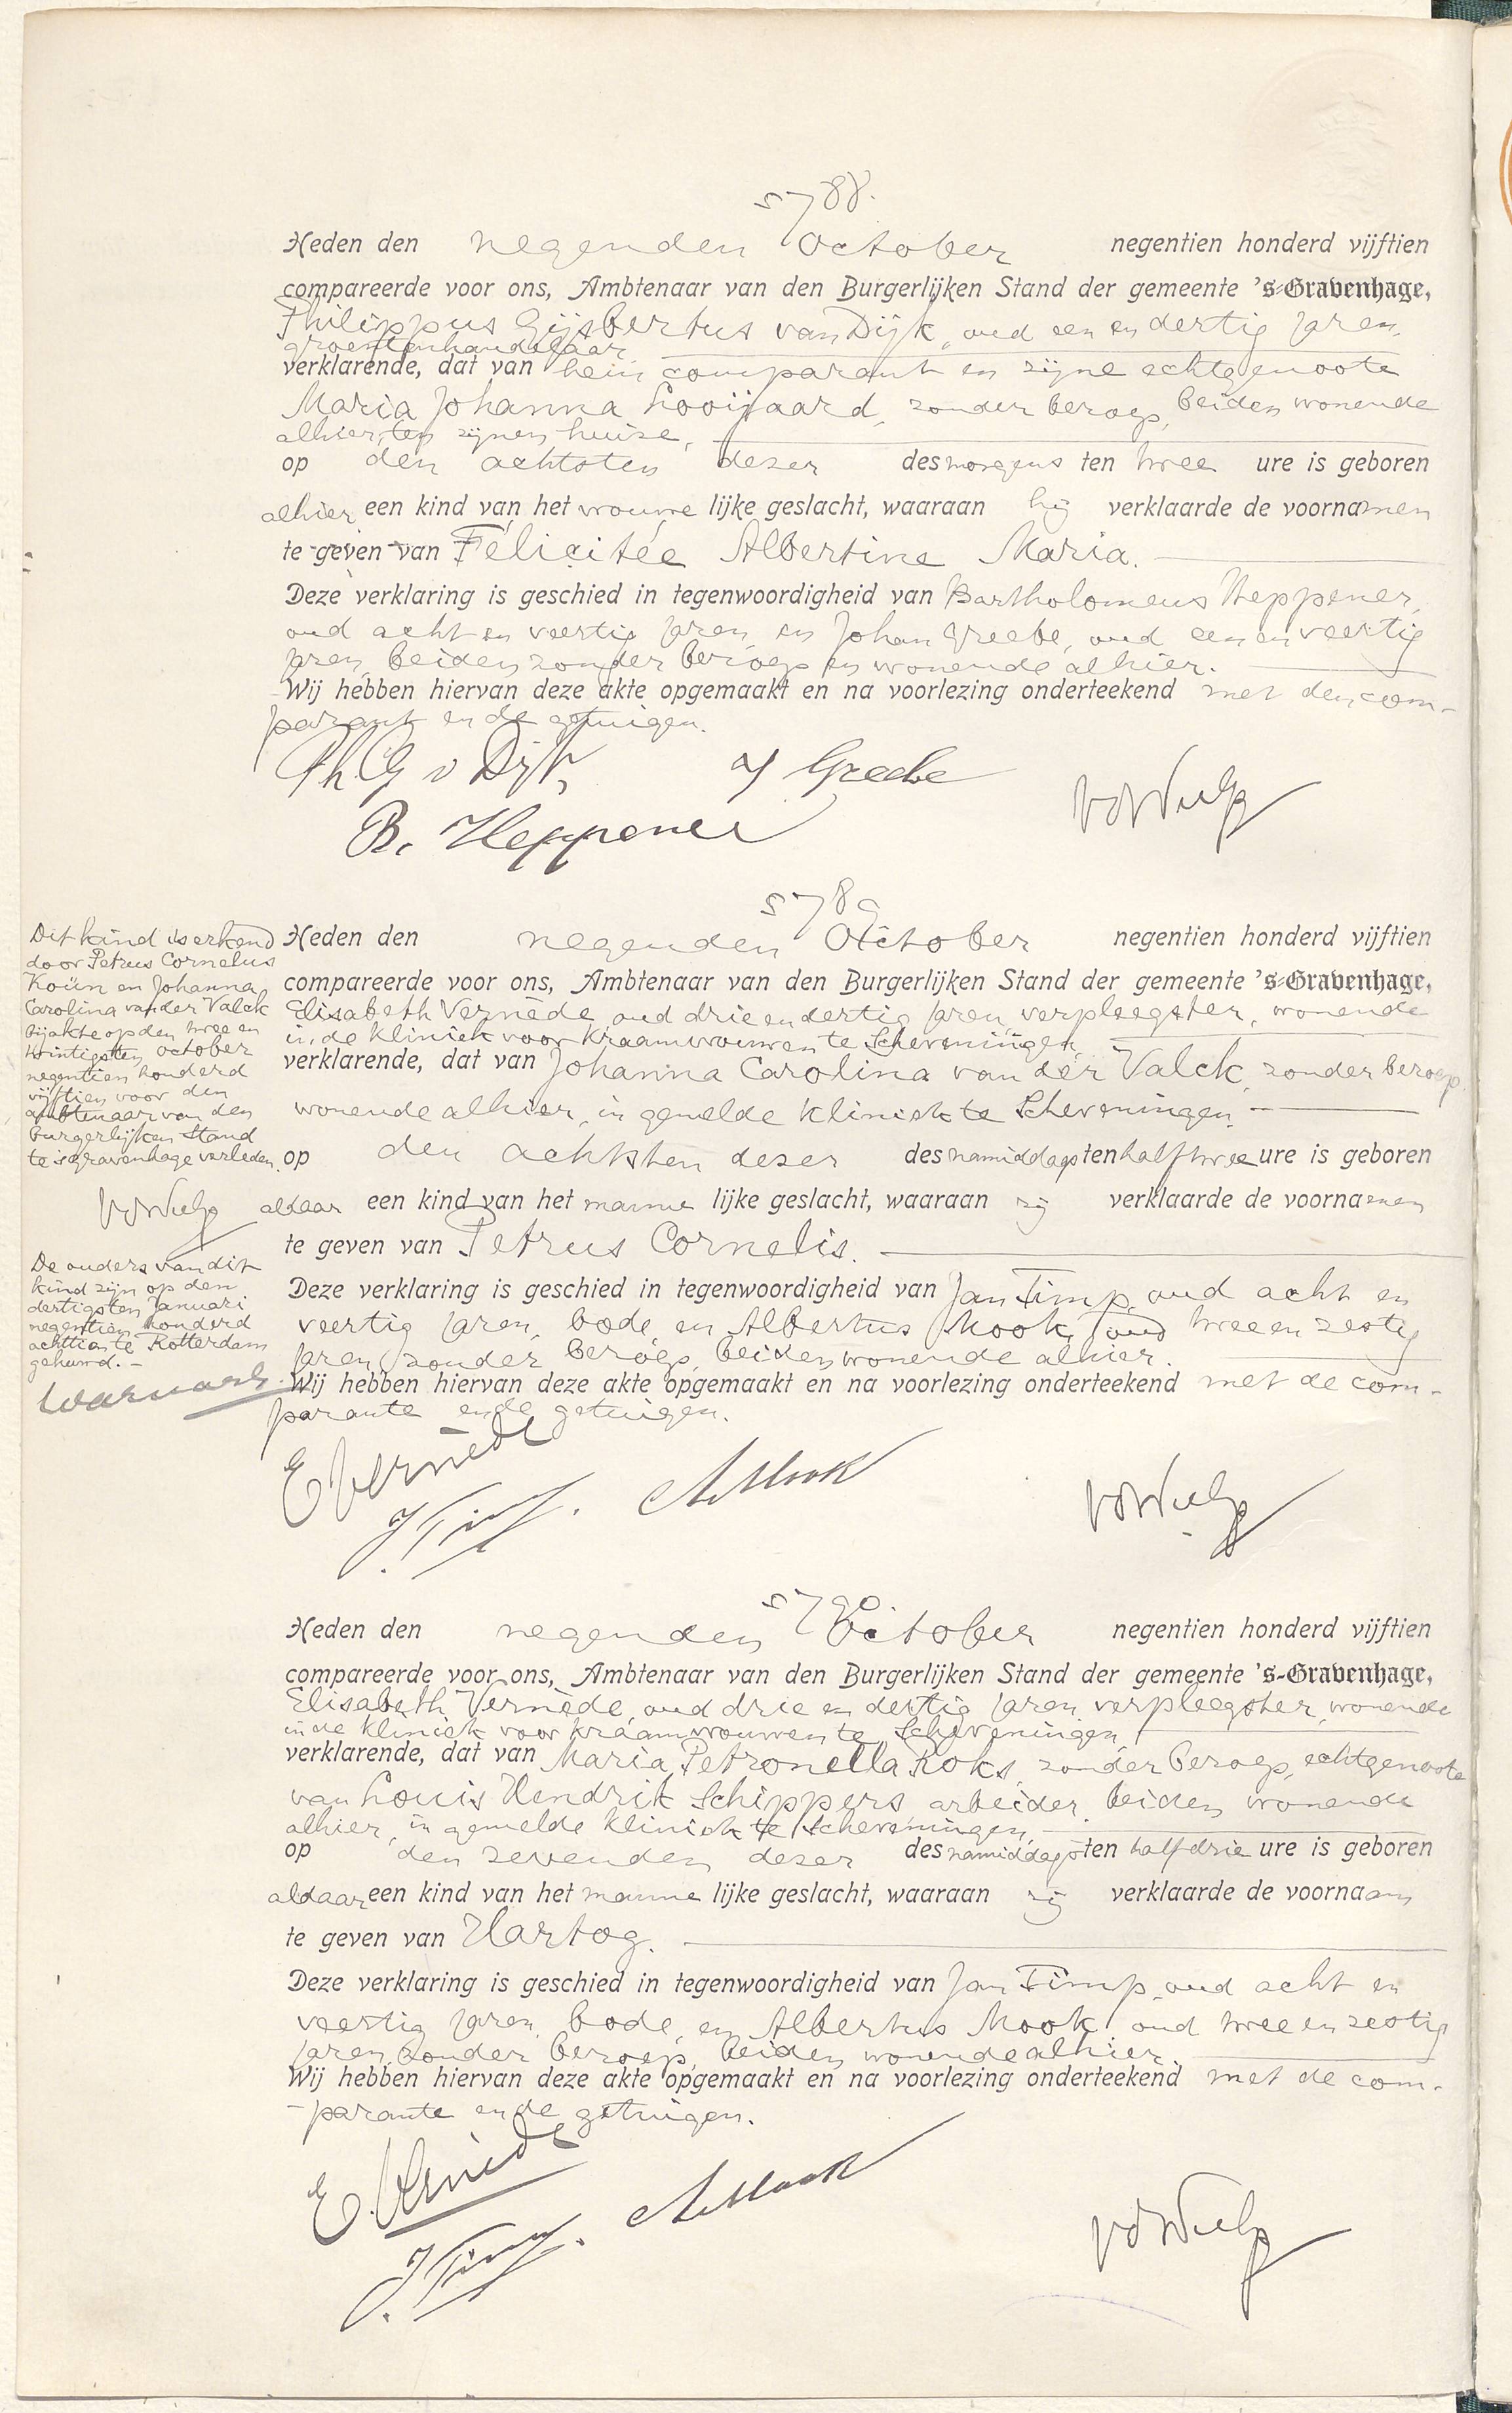 5788.
Heden den negenden October negentien honderd vijftien
compareerde voor ons, Ambtenaar van den Burgerlijken Stand der gemeente 's-Gravenhage,
Philippus Gijsbertus van Dijk, oud een en dertig jaren,
groentenhandelaar,
verklarende, dat van hem comparant en zijne echtgenoote
Maria Johanna Looijaard, zonder beroep, beiden wonende
alhier, ten zijnen huize,
op den achtsten dezer des morgens ten twee ure is geboren
alhier een kind van het vrouwe lijke geslacht, waaraan hij verklaarde de voornamen
te geven van Félicitée Albertine Maria.
Deze verklaring is geschied in tegenwoordigheid van Bartholomeus Heppener,
oud acht en veertig jaren, en Johan Greebe, oud een en veertig
jaren, beiden zonder beroep en wonende alhier.
Wij hebben hiervan deze akte opgemaakt en na voorlezing onderteekend met den com-
parant en de getuigen.
Ph G v Dijk, J Greebe
B. Heppener
5789
Heden den negenden October negentien honderd vijftien
compareerde voor ons, Ambtenaar van den Burgerlijken Stand der gemeente 's-Gravenhage,
Elisabeth Vernède, oud drie en dertig jaren, verpleegster, wonende
in de kliniek voor kraamvrouwen te Scheveningen,
verklarende, dat van Johanna Carolina van der Valck, zonder beroep,
wonende alhier, in gemelde kliniek te Scheveningen,
op den achtsten dezer des namiddags ten half twee ure is geboren
aldaar een kind van het manne lijke geslacht, waaraan zij verklaarde de voornamen
te geven van Petrus Cornelis.
Deze verklaring is geschied in tegenwoordigheid van Jan Timp, oud acht en
veertig jaren, bode, en Albertus Mook, oud twee en zestig
jaren, zonder beroep, beiden wonende alhier.
Wij hebben hiervan deze akte opgemaakt en na voorlezing onderteekend met de com-
parante en de getuigen.
E Vernède
J Timp. A Mook
Dit kind is erkend
door Petrus Cornelus
Koün en Johanna
Carolina van der Valck
bij akte op den twee en
twintigsten october
negentien honderd
vijftien voor den
ambtenaar van den
burgerlijken Stand
te 's gravenhage verleden.
De ouders van dit
kind zijn op den
dertigsten Januari
negentien honderd
achttien te Rotterdam
gehuwd.-
5790
Heden den negenden October negentien honderd vijftien
compareerde voor ons, Ambtenaar van den Burgerlijken Stand der gemeente 's-Gravenhage,
Elisabeth Vernède, oud drie en dertig jaren, verpleegster, wonende
in de kliniek voor kraamvrouwen te Scheveningen,
verklarende, dat van Maria Petronella Koks, zonder beroep, echtgenoote
van Louis Hendrik Schippers, arbeider, beiden wonende
alhier, in gemelde kliniek te Scheveningen,
op den zevenden dezer des namiddags ten half drie ure is geboren
aldaar een kind van het manne lijke geslacht, waaraan zij verklaarde de voornaam
te geven van Hartog.
Deze verklaring is geschied in tegenwoordigheid van Jan Timp, oud acht en
veertig jaren, bode, en Albertus Mook, oud twee en zestig
jaren, zonder beroep, beiden wonende alhier.
Wij hebben hiervan deze akte opgemaakt en na voorlezing onderteekend met de com-
parante en de getuigen.
E. Vernède
J Timp. A Mook